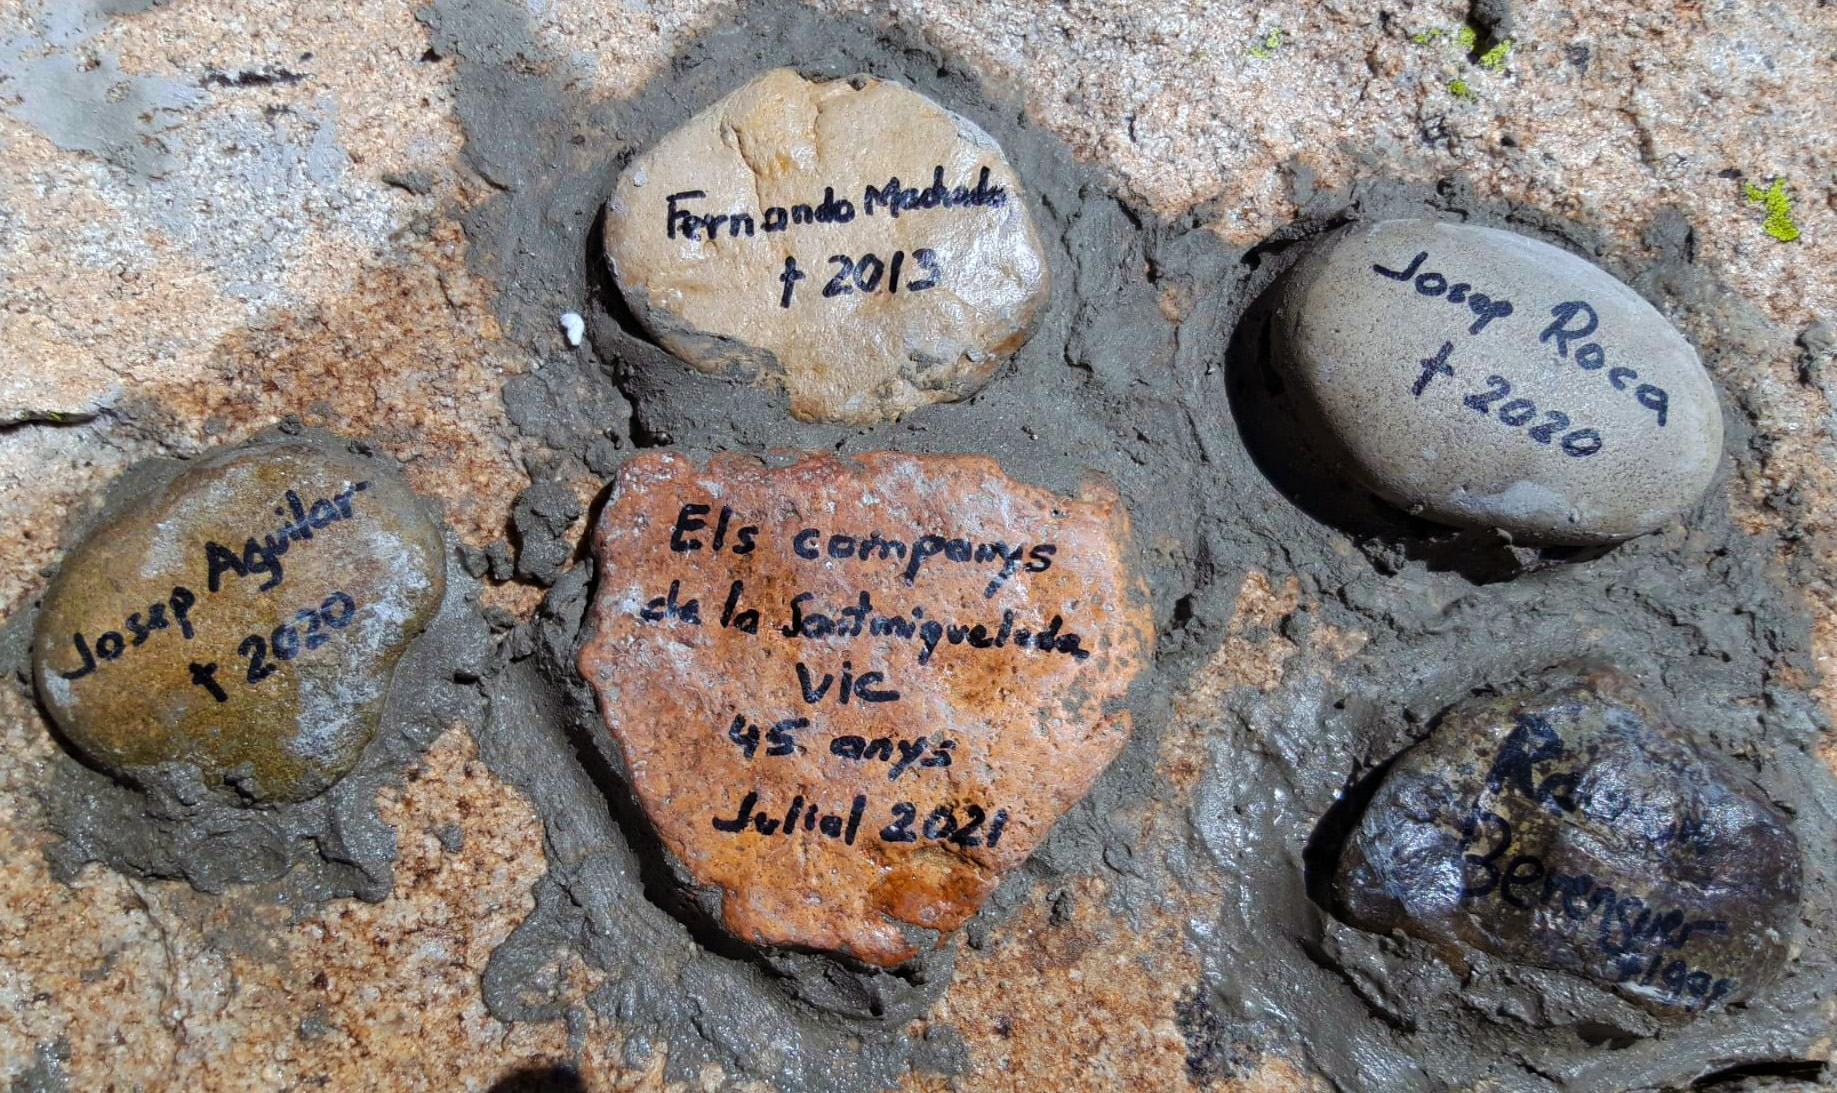 Fernando Machado
† 2013
Josep Roca
† 2020
Josep Aguilar
† 2020
Els companys
de la Santmiquelada
Vic
45 anys
Juliol 2021
Berenguer